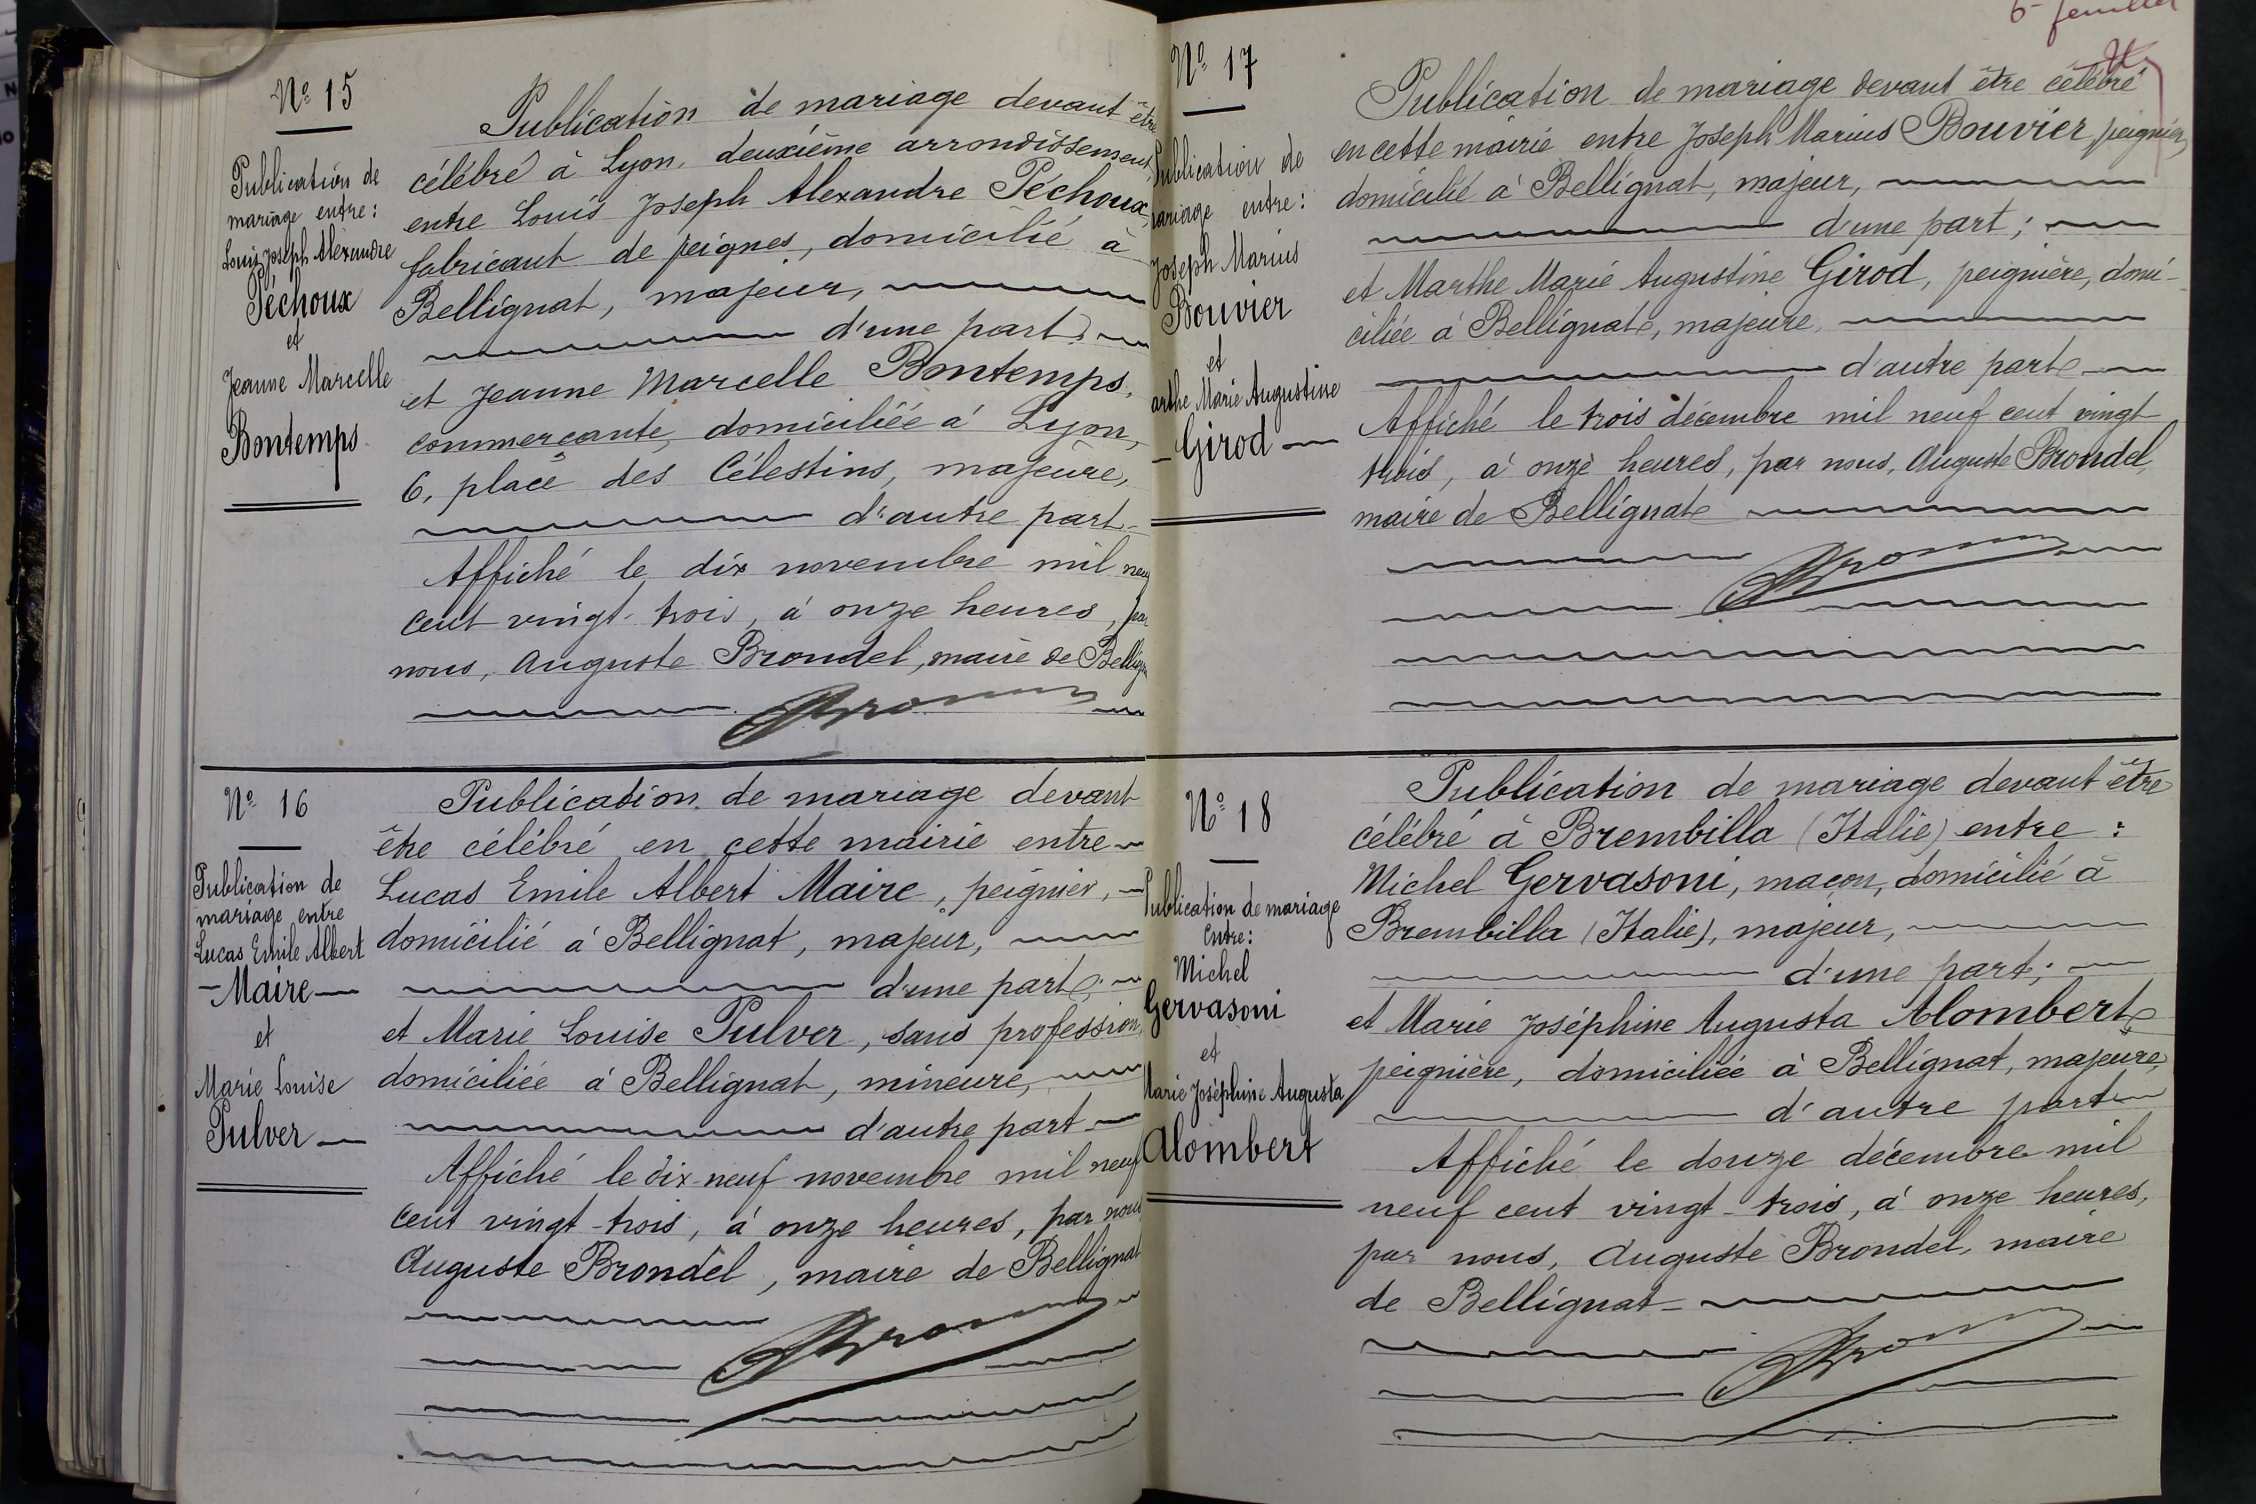 Nº 15
Publication de
mariage entre:
Louis Joseph Alexandre
Péchoux
et
Jeanne Marcelle
Bontemps
Publication de mariage devant être
célébré à Lyon, deuxième arrondissement,
entre Louis Joseph Alexandre Péchoux,
fabricant de peignes, domicilié à
Bellignat, majeur,
d'une part;
et Jeanne Marcelle Bontemps,
commerçante, domiciliée à Lyon,
6, place des Célestins, majeure,
d'autre part.
Affiché le dix novembre mil neuf
cent vingt-trois, à onze heures, par
nous, Auguste Brondel, maire de Bellign
Nº 16
Publication de
mariage entre
Lucas Emile Albert
Maire
et
Marie Louise
Pulver
Publication de mariage devant
être célébré en cette mairie entre
Lucas Emile Albert Maire, peignier,
domicilié à Bellignat, majeur,
d'une part;
et Marie Louise Pulver, sans profession,
domiciliée à Bellignat, mineure,
d'autre part
Affiché le dix-neuf novembre mil neuf
cent vingt-trois, à onze heures, par nous
Auguste Brondel, maire de Bellignat
6e feuillet
Nº 17
Publication de
mariage entre:
Joseph Marius
Bouvier
et
arthe Marie Augustine
Girod
Publication de mariage devant être célébré
en cette mairie entre Joseph Marius Bouvier, peignier,
domicilié à Bellignat, majeur,
d'une part;
et Marthe Marie Augustine Girod, peignière, domi-
ciliée à Bellignat, majeure,
d'autre part
Affiché le trois décembre mil neuf cent vingt
trois, à onze heures, par nous, Auguste Brondel,
maire de Bellignat
Nº 18
Publication de mariage
entre:
Michel
Gervasoni
et
Marie Joséphine Augusta
Alombert
Publication de mariage devant être
célébré à Brembilla (Italie) entre:
Michel Gervasoni, maçon, domicilié à
Brembilla (Italie), majeur,
d'une part;
et Marie Joséphine Augusta Alombert,
peignière, domiciliée à Bellignat, majeure,
d'autre part
Affiché le douze décembre mil
neuf cent vingt-trois, à onze heures,
par nous, Auguste Brondel, maire
de Bellignat